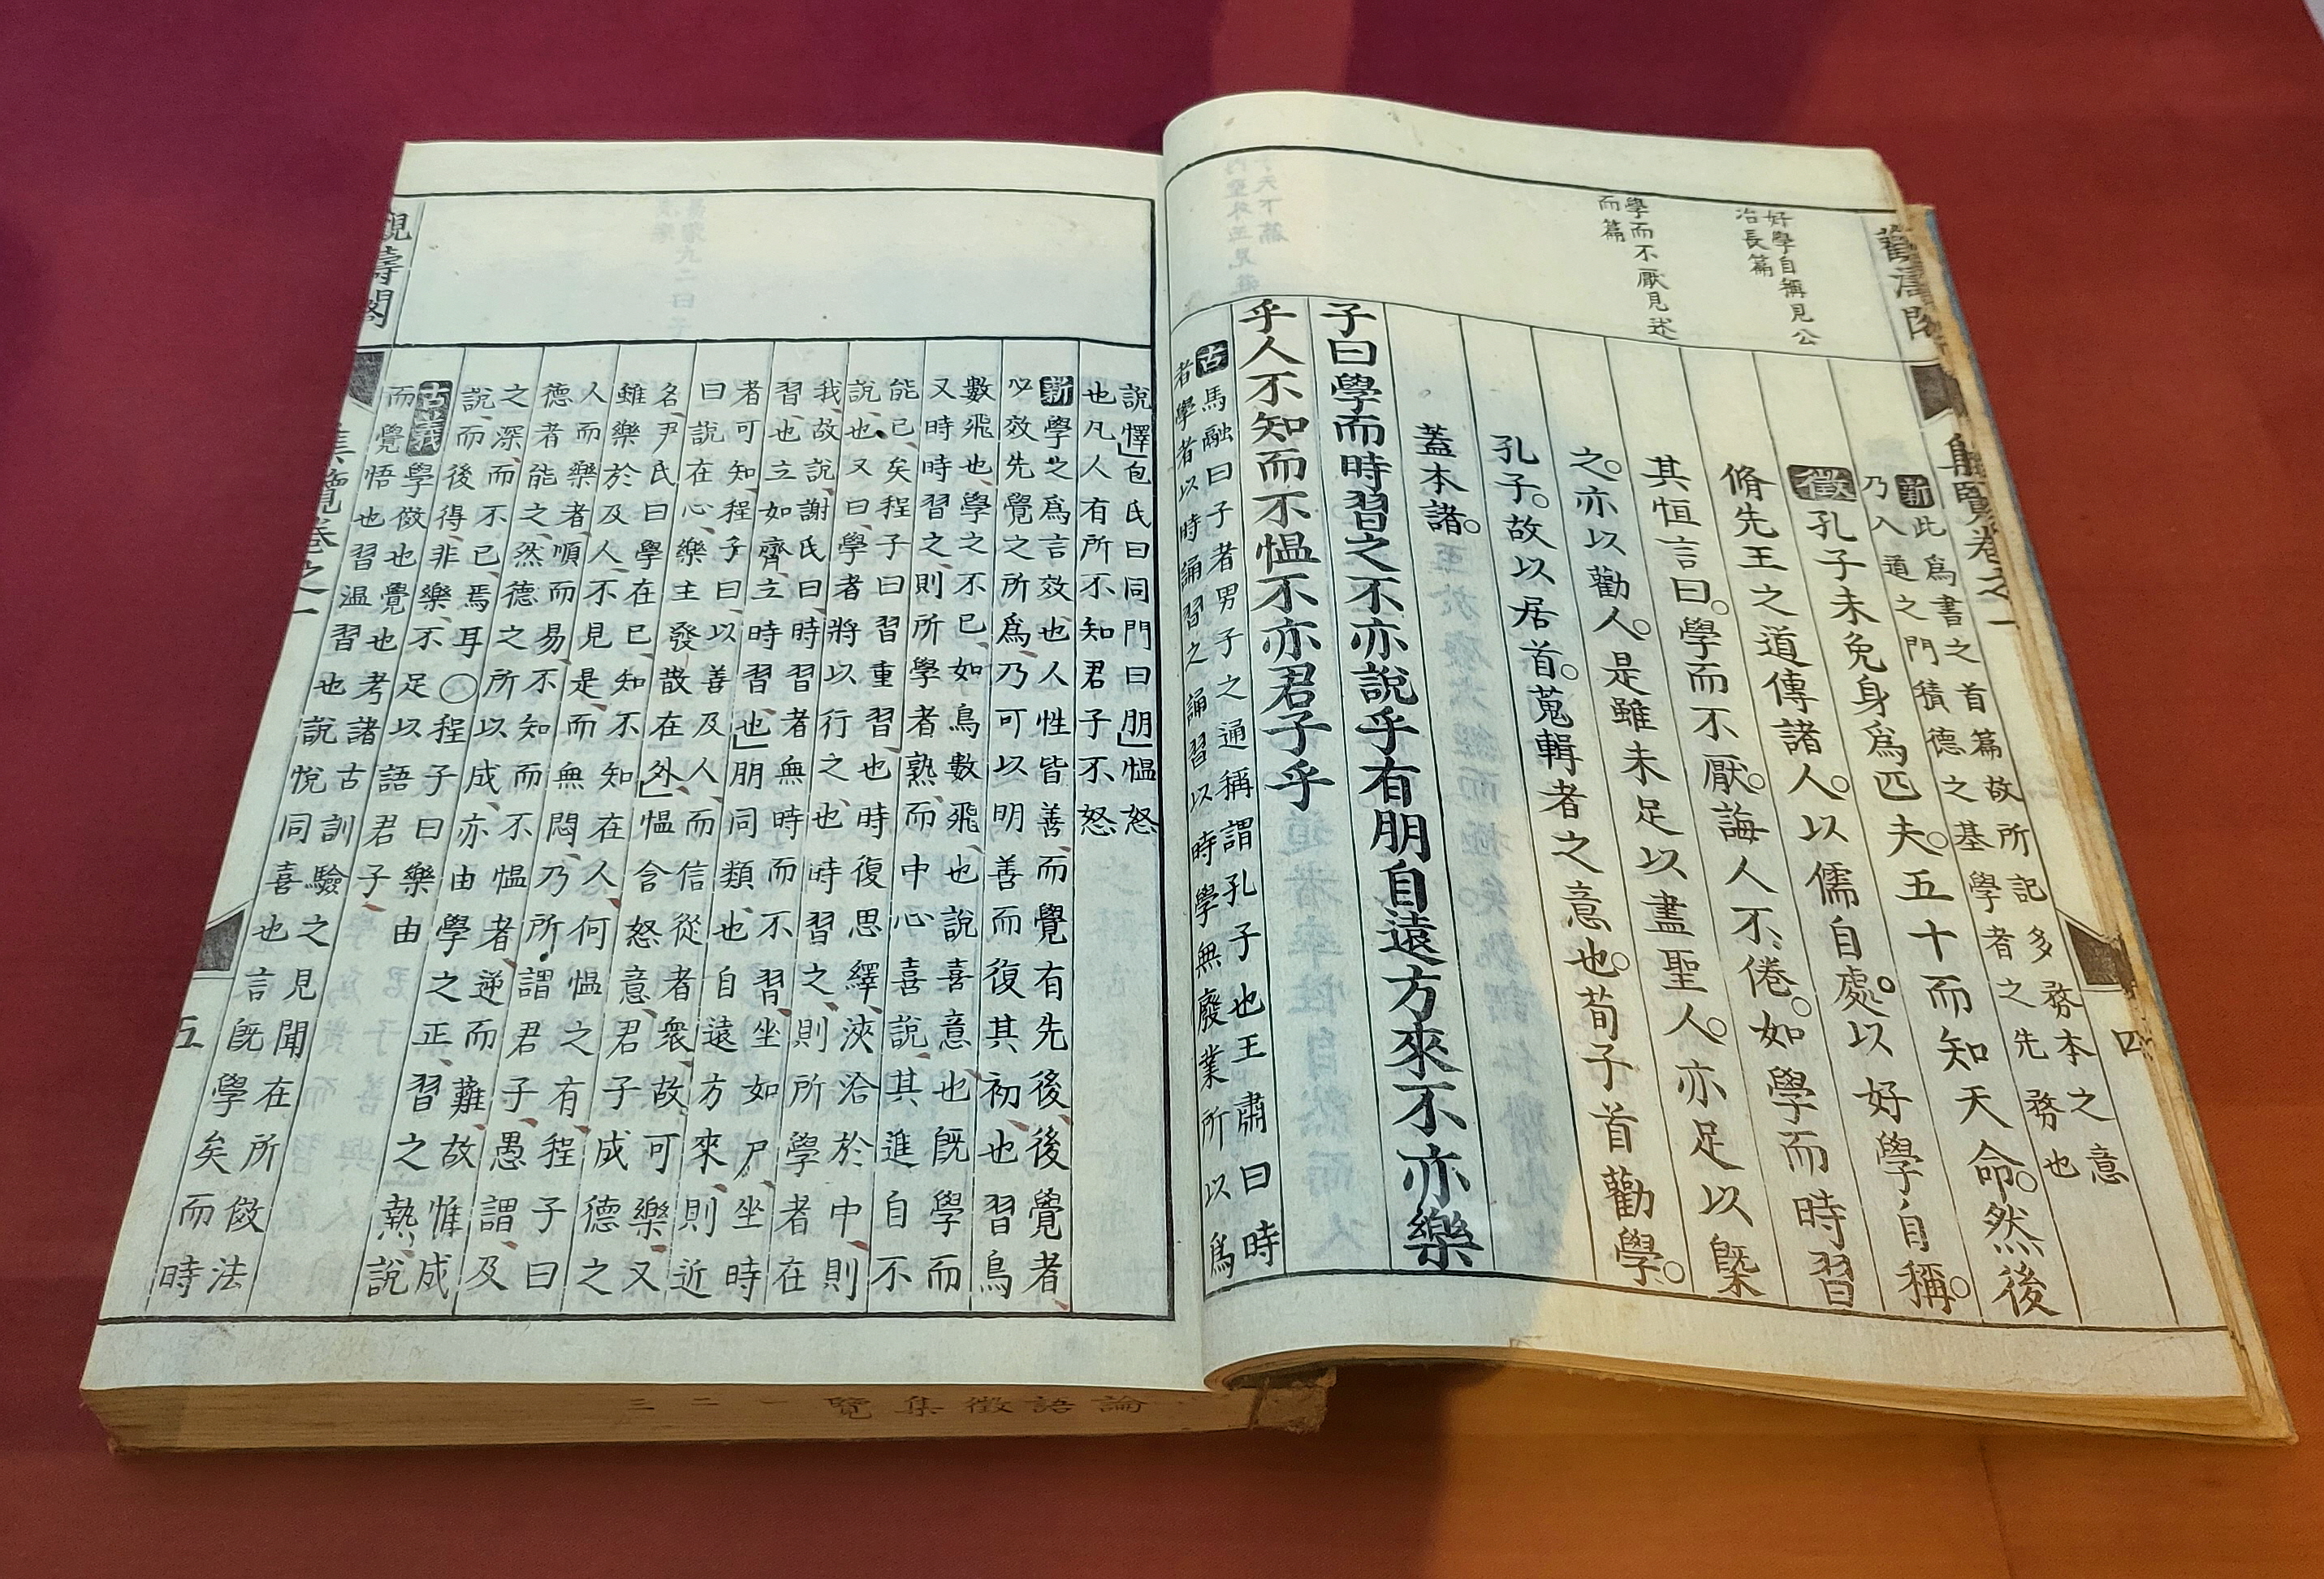 觀濤閣
集覽卷之一
四
好學自稱見公
冶長篇
學而不厭見述
而篇
新此爲書之首篇故所記多務本之意
乃入道之門積德之基學者之先務也
徵孔子未免身爲匹夫。五十而知天命。然後
脩先王之道傳諸人。以儒自處。以好學自稱。
其恒言曰。學而不厭。誨人不倦。如學而時習
之。亦以勸人。是雖未足以盡聖人。亦足以槩
孔子。故以居首。蒐輯者之意也。荀子首勸學。
蓋本諸。
子曰學而時習之不亦說乎有朋自遠方來不亦樂
乎人不知而不慍不亦君子乎
古馬融曰子者男子之通稱謂孔子也王肅曰時
者學者以時誦習之誦習以時學無廢業所以爲
說懌」包氏曰同門曰朋」慍怒
也凡人有所不知君子不怒
新學之爲言效也人性皆善而覺有先後後覺者
必效先覺之所爲乃可以明善而復其初也習鳥
數飛也學之不已如鳥數飛也說喜意也旣學而
又時時習之則所學者熟而中心喜說其進自不
能已矣程子曰習重習也時復思繹浹洽於中則
說也又曰學者將以行之也時習之則所學者在
我故說謝氏曰時習者無時而不習坐如尸坐時
習也立如齊立時習也」朋同類也自遠方來則近
者可知程子曰以善及人而信從者衆故可樂又
曰說在心樂主發散在外」慍含怒意君子成德之
名尹氏曰學在已知不知在人何慍之有程子曰
雖樂於及人不見是而無悶乃所謂君子愚謂及
人而樂者順而易不知而不慍者逆而難故惟成
德者能之然德之所以成亦由學之正習之熟說
之深而不已焉耳○程子曰樂由
說而後得非樂不足以語君子
古義學傚也覺也考諸古訓驗之見聞在所傚法
而覺悟也習温習也說悅同喜也言旣學矣而時
觀濤閣
集覽卷之一
五
論語徵集覽 一二三